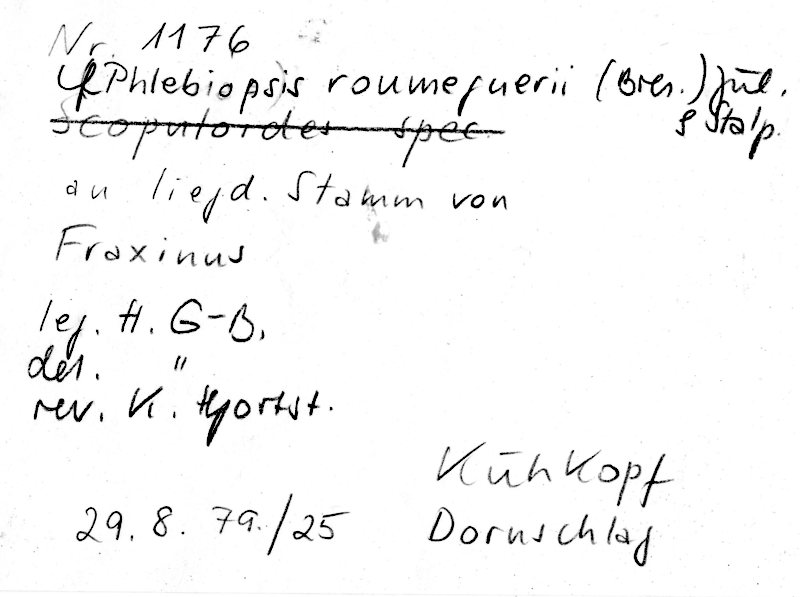 Nr. 1176
Phlebiopsis roumeguerii (Bres.) Jül. & Stalp.
Scopuloides spec.
an liegd. Stamm von
Fraxinus
leg. H. G-B.
det. "
rev. K. Hjortst.
Kühkopf
29. 8. 79./25 Dornschlag